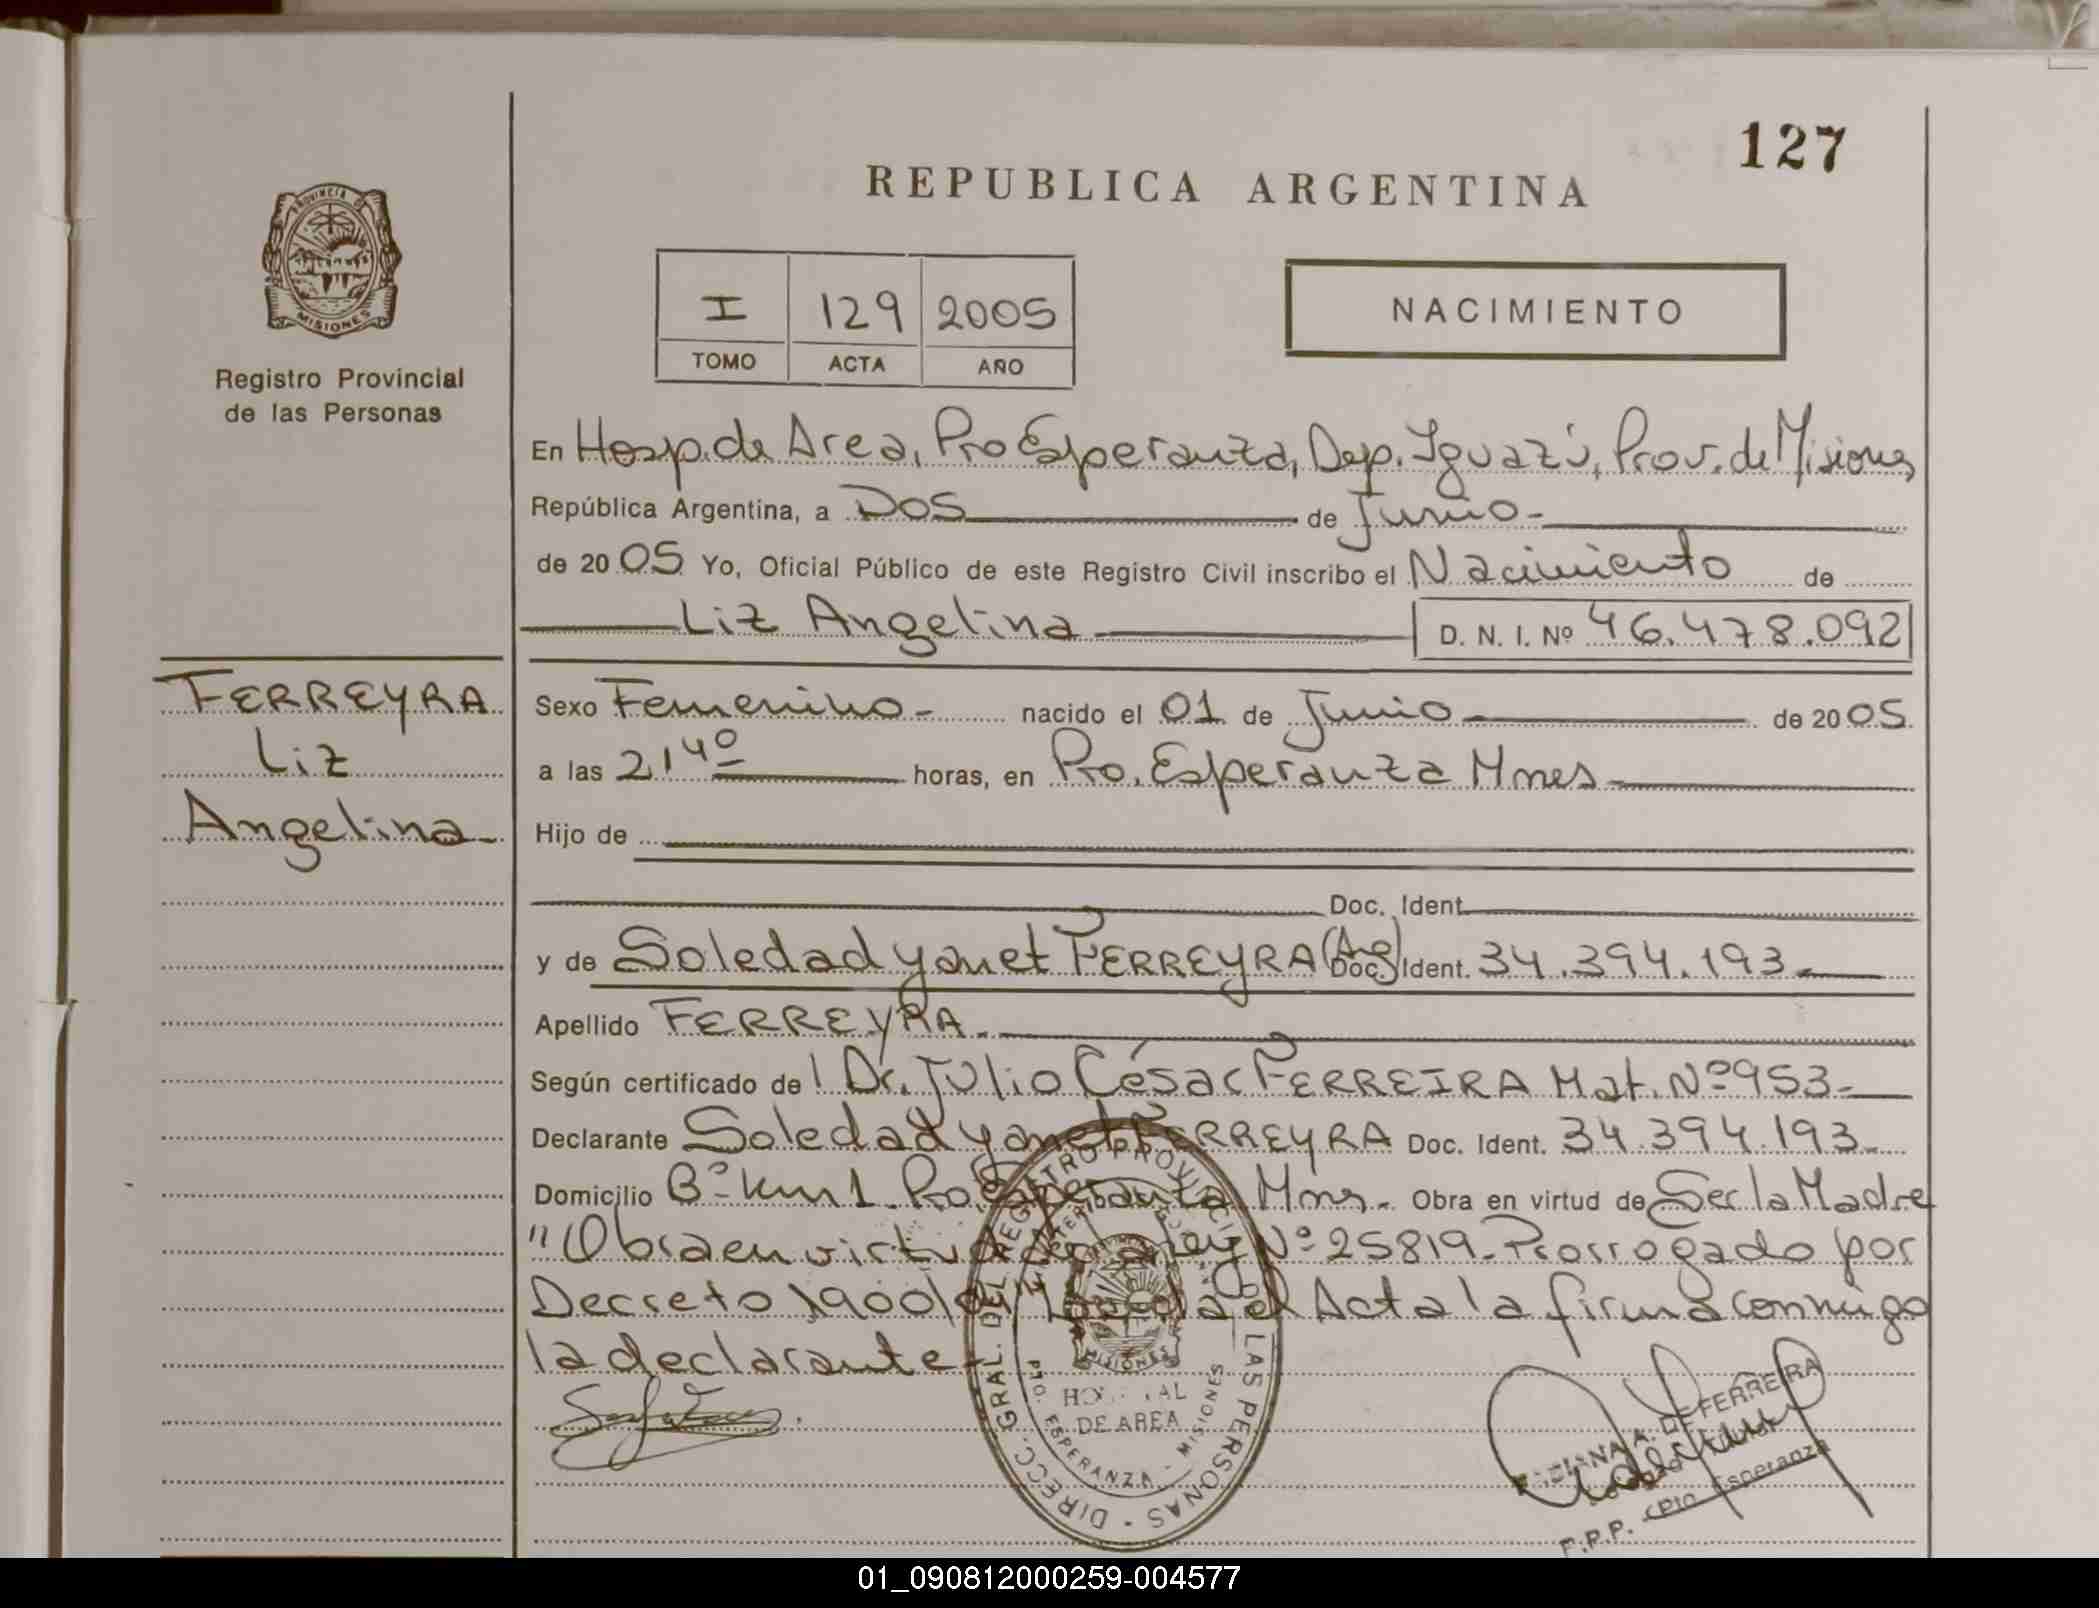 127
REPUBLICA ARGENTINA
PROVINCIA DE
MISIONES
Registro Provincial
de las Personas
I 129 2005
TOMO ACTA AÑO
NACIMIENTO
En Hosp. de Area, Pto Esperanza, Dep. Iguazú, Prov. de Misiones
República Argentina, a Dos de Junio-
de 2005 Yo, Oficial Público de este Registro Civil inscribo el Nacimiento de
Liz Angelina D. N. I. Nº 46.478.092
FERREYRA
Liz
Angelina
Sexo Femenino- nacido el 01 de Junio de 2005
a las 21 40 horas, en Pto. Esperanza Mnes
Hijo de
Doc. Ident.
y de Soledad Yanet FERREYRA (Arg) Doc. Ident. 34.394.193
Apellido FERREYRA
Según certificado de Dr. Julio César FERREIRA Mat. Nº 953
Declarante Soledad Yanet FERREYRA Doc. Ident. 34.394.193
Domicilio Bº Km 1 Pto. Esperanza Mnes. Obra en virtud de Ser la Madre
"Obra en virtud de la Ley Nº 25819- Prorrogado por
Decreto 1900/04" Leída el Acta la firma conmigo
la declarante
DIRECC. GRAL. DEL REGISTRO PROVINCIAL DE LAS PERSONAS
MISIONES
HOSPITAL
DE AREA
PTO. ESPERANZA - MISIONES
FABIANA A. DE FERREIRA
R.P.P. Pto. Esperanza
01_090812000259-004577